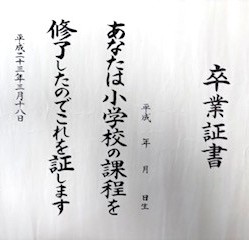 卒業証書
平成　年　月　日生
あなたは小学校の課程を
修了したのでこれを証します
平成二十三年三月十八日